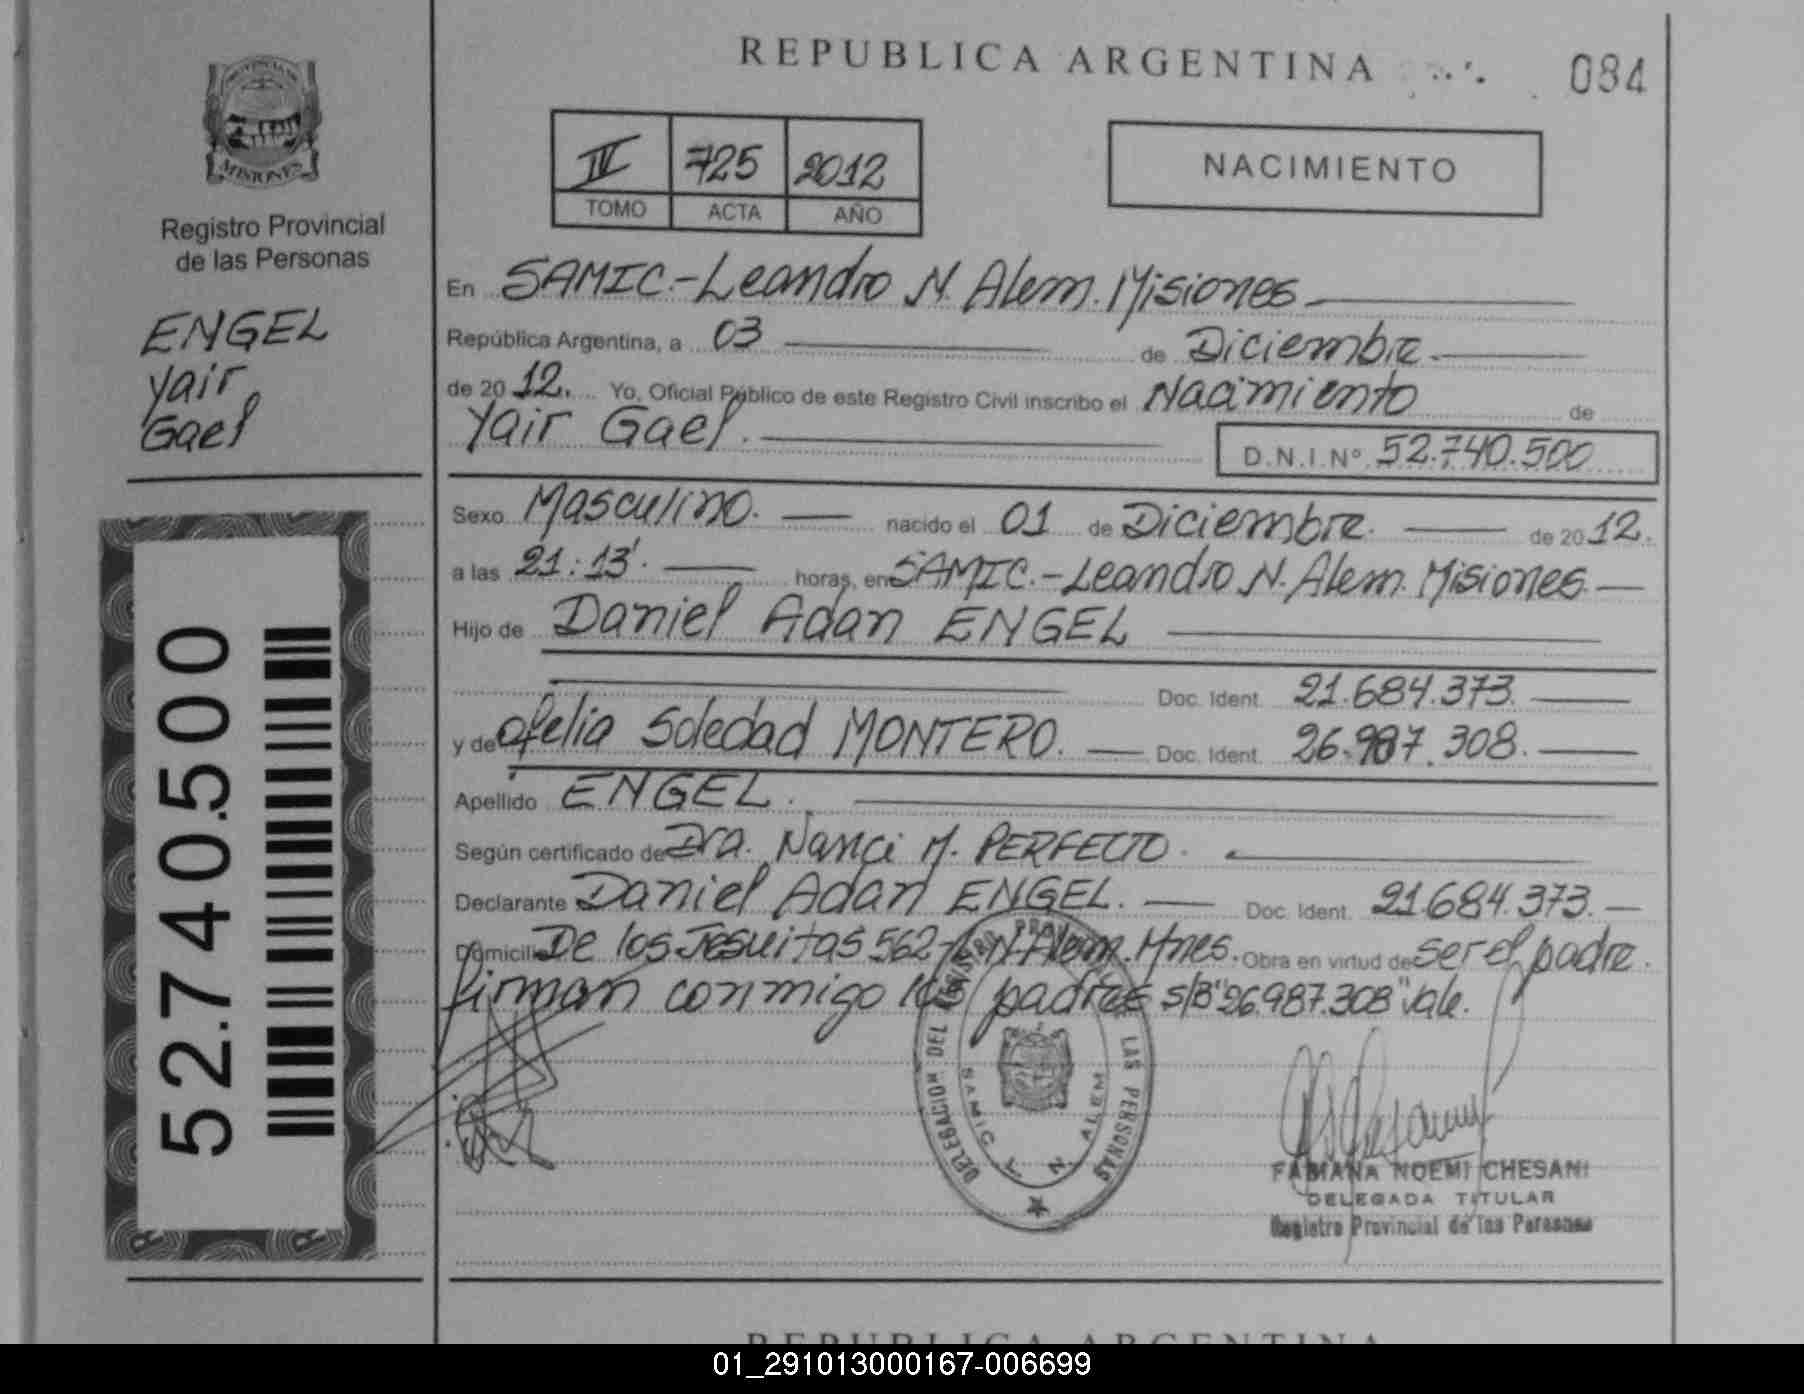 REPUBLICA ARGENTINA
084
PROVINCIA DE
MISIONES
Registro Provincial
de las Personas
ENGEL
Yair
Gael
52.740.500
IV 725 2012
TOMO ACTA AÑO
NACIMIENTO
En SAMIC.-Leandro N. Alem. Misiones
República Argentina, a 03 de Diciembre.
de 20 12. Yo, Oficial Público de este Registro Civil inscribo el Nacimiento de
Yair Gael.
D.N.I.Nº 52.740.500
Sexo Masculino. nacido el 01 de Diciembre. de 20 12.
a las 21:13'. horas, en SAMIC.-Leandro N. Alem. Misiones.
Hijo de Daniel Adan ENGEL
Doc. Ident. 21.684.373.
y de Ofelia Soledad MONTERO. Doc. Ident. 26.987.308.
Apellido ENGEL.
Según certificado de Dra. Nanci M. PERFECTO.
Declarante Daniel Adan ENGEL. Doc. Ident. 21.684.373.
Domicilio De los Jesuitas 562-L.N.Alem. Mnes. Obra en virtud de ser el padre.
firman conmigo los padres s/B "26.987.308" Vale.
DELEGACION DEL REGISTRO PROVINCIAL DE LAS PERSONAS
SAMIC L. N. ALEM
FABIANA NOEMI CHESANI
DELEGADA TITULAR
Registro Provincial de las Personas
REPUBLICA ARGENTINA
01_291013000167-006699